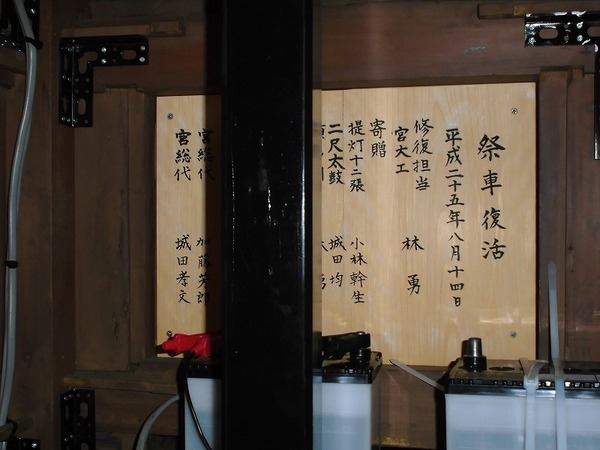 祭車復活
平成二十五年八月十四日
修復担当
宮大工 林勇
寄贈
提灯十二張 小林幹生
二尺太鼓 城田均
宮総代 加藤芳郎
宮総代 城田孝文